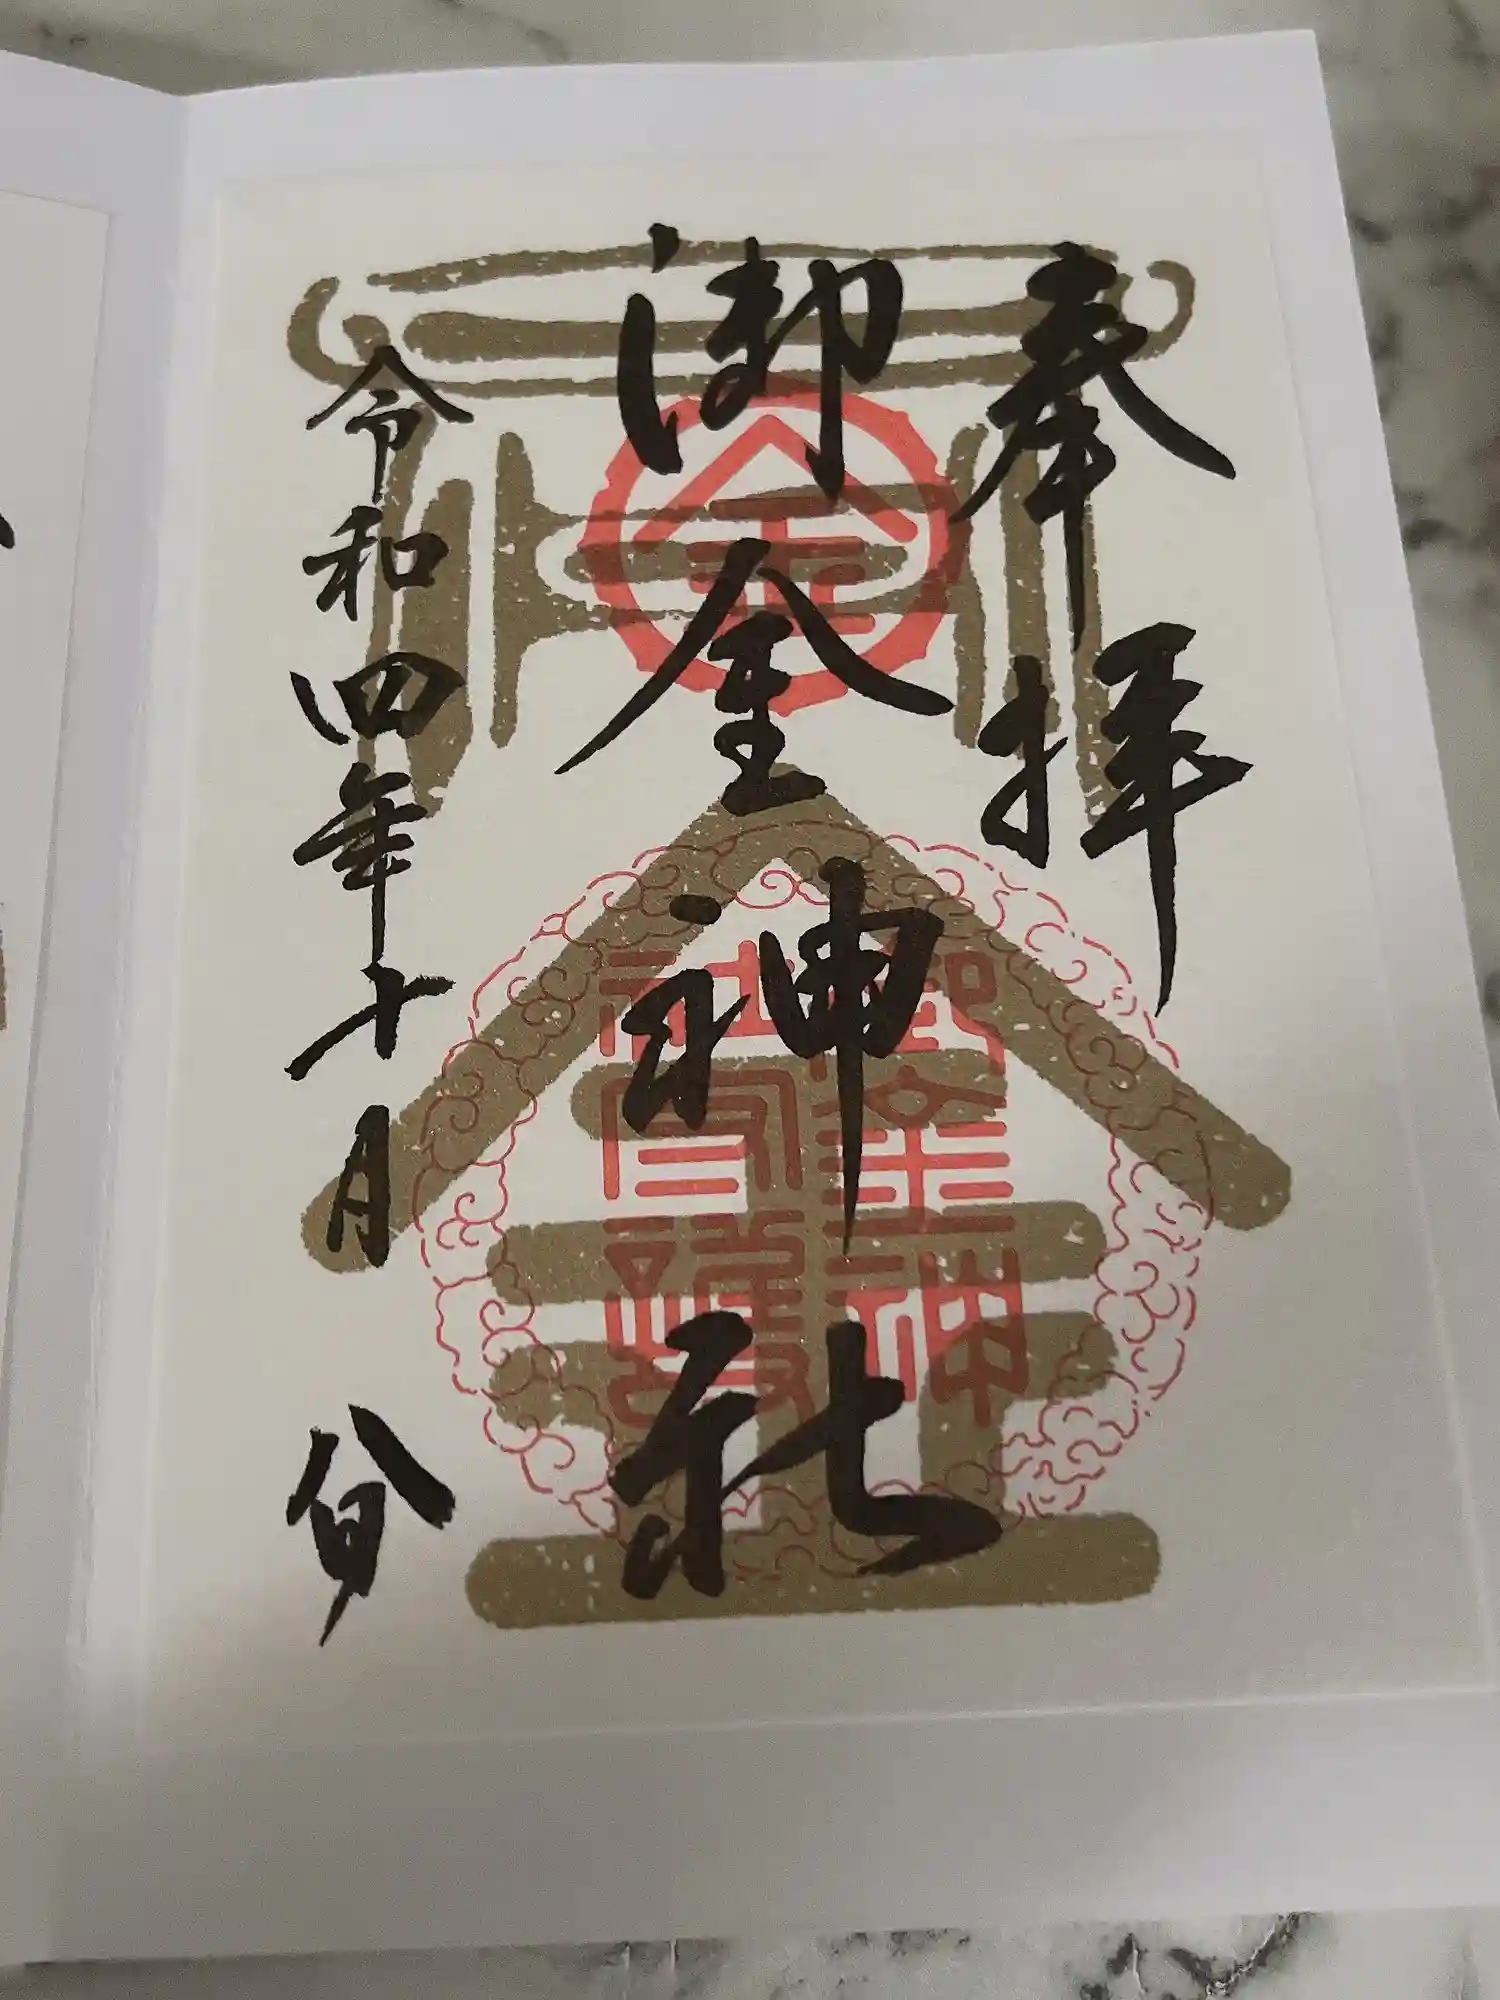 奉拝
御金神社
令和四年十月八日
金
御金神
社